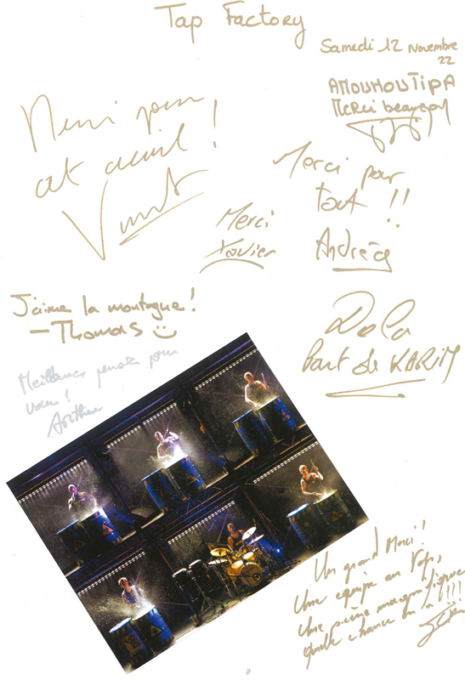 Tap Factory
Samedi 12 Novembre
22
AMOUMOUTIPA
Merci beaucoup
Merci pour
cet accueil !
Vincent
Merci pour
tout !!
Andréa
Merci
Xavier
J'aime la montagne !
- Thomas
Meilleures pensées pour
vous !
Arthur
De la
Part de KARIM
Un grand Merci !
Une équipe au Top,
Une scène magnifique
quelle chance on a !!!